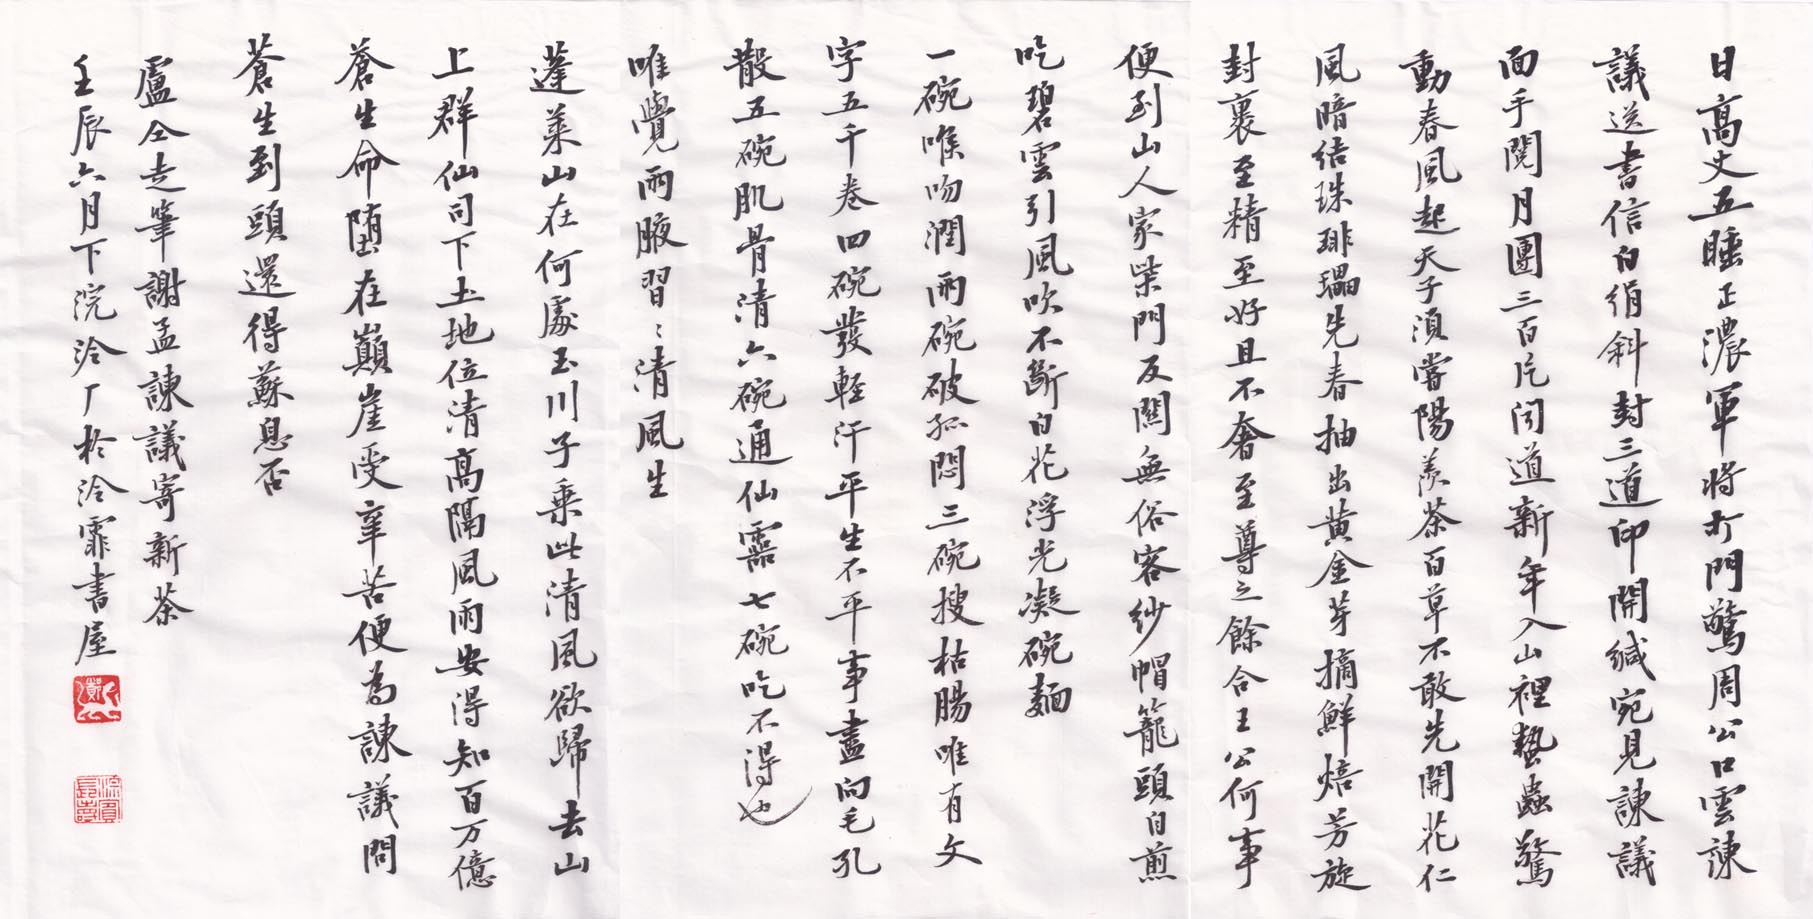 日高丈五睡正濃軍將打門驚周公口雲諫
議送書信白絹斜封三道印開緘宛見諫議
面手閱月團三百片聞道新年入山裡蟄蟲驚
動春風起天子須嘗陽羨茶百草不敢先開花仁
風暗結珠琲瓃先春抽出黃金芽摘鮮焙芳旋
封裹至精至好且不奢至尊之餘合王公何事
便到山人家柴門反關無俗客紗帽籠頭自煎
吃碧雲引風吹不斷白花浮光凝碗麵
一碗喉吻潤兩碗破孤悶三碗搜枯腸唯有文
字五千卷四碗發輕汗平生不平事盡向毛孔
散五碗肌骨清六碗通仙靈七碗吃不得也
唯覺兩腋習〻清風生
蓬萊山在何處玉川子乘此清風欲歸去山
上群仙司下土地位清高隔風雨安得知百万億
蒼生命堕在巔崖受辛苦便為諫議問
蒼生到頭還得蘇息否
盧仝走筆謝孟諫議寄新茶
壬辰六月下浣泠厂於泠霏書屋